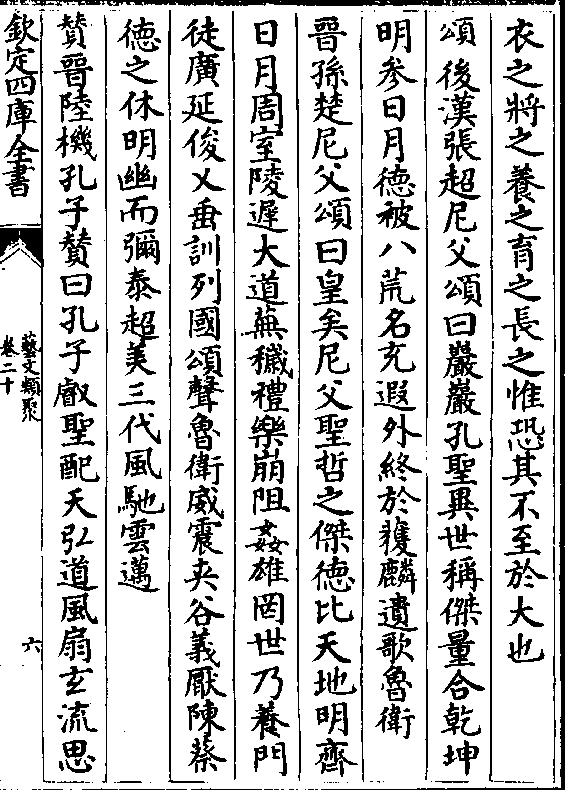 衣之將之養之育之長之惟恐其不至於大也
頌後漢張超尼父頌曰巖巖孔聖異世稱傑量合乾坤
明參日月德被八荒名充遐外終於獲麟遺歌魯衛
晉孫楚尼父頌曰皇矣尼父聖哲之傑德比天地明齊
日月周室陵遲大道蕪穢禮樂崩阻姦雄罔世乃養門
徒廣延俊乂垂訓列國頌聲魯衛威震夾谷義厭陳蔡
德之休明幽而彌泰超美三代風馳雲邁
贊晉陸機孔子贊曰孔子叡聖配天弘道風扇玄流思
欽定四庫全書
藝文類聚
卷二十
六